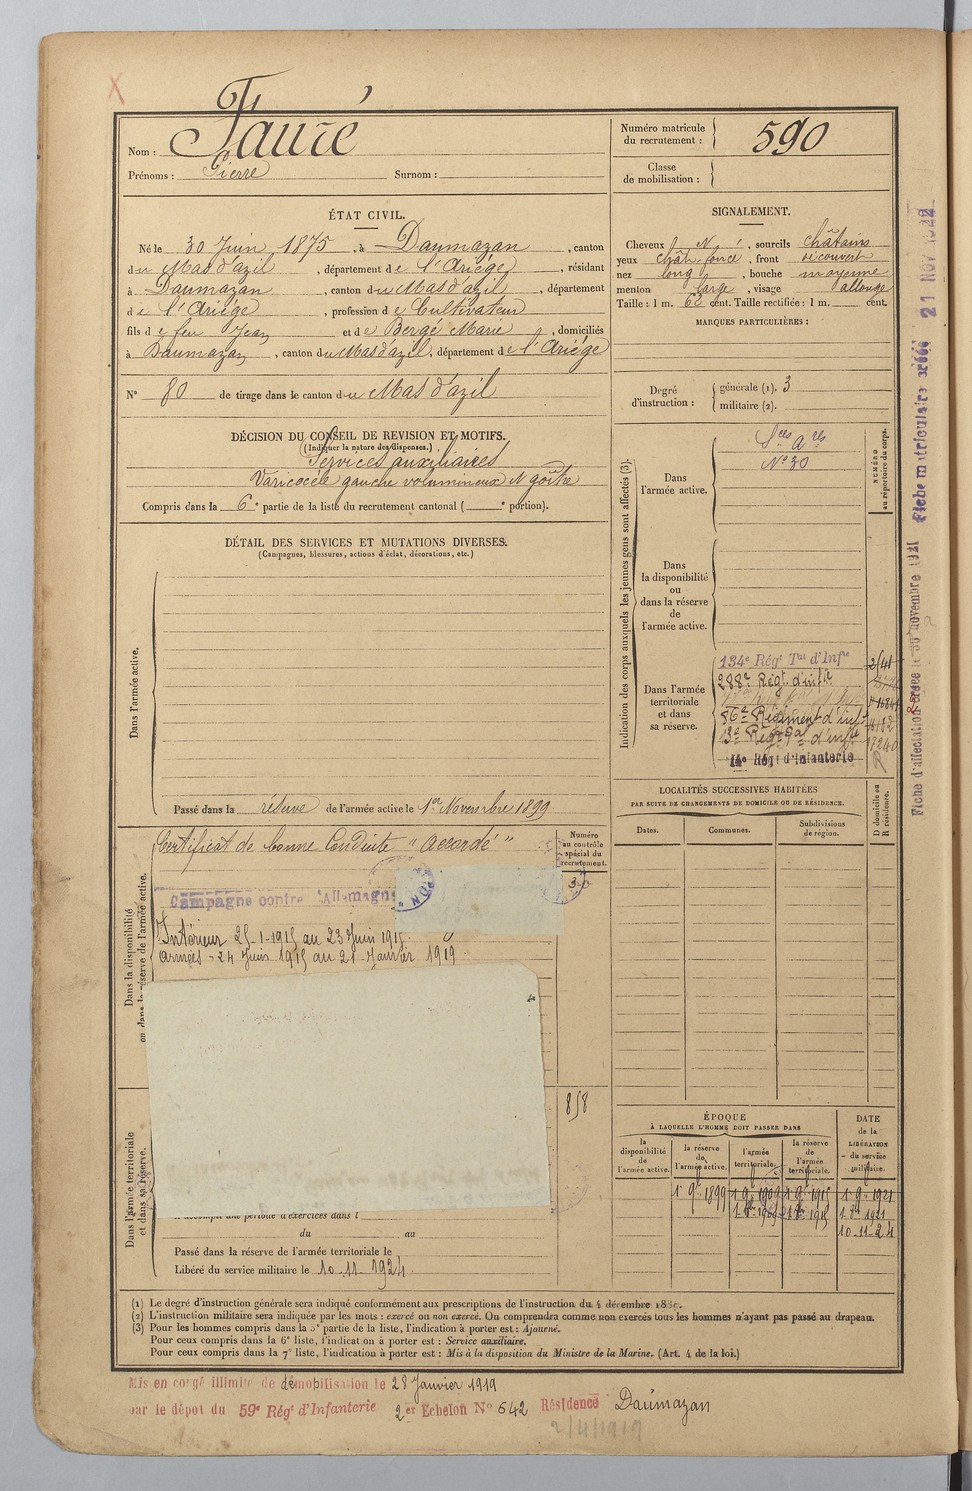 Fauré
Nom :
Prénoms : Pierre Surnom :
Numéro matricule du recrutement : 590
Classe de mobilisation :
ÉTAT CIVIL.
Né le 30 Juin 1875, à Daumazan, canton
du Mas d'azil, département de l'Ariège, résidant
à Daumazan, canton du Mas d'azil, département
de l'Ariège, profession de Cultivateur
fils de feu Jean et de Bergé Marie, domiciliés
à Daumazan, canton du Mas d'azil, département de l'Ariège
N° 80 de tirage dans le canton du Mas d'azil
SIGNALEMENT.
Cheveux N, sourcils châtains
yeux chât foncé, front découvert
nez long, bouche moyenne
menton large, visage allongé
Taille : 1 m. cent. Taille rectifiée : 1 m. cent.
MARQUES PARTICULIÈRES :
Degré d'instruction : générale (1). 3
militaire (2).
DÉCISION DU CONSEIL DE REVISION ET MOTIFS.
(Indiquer la nature des dispenses.)
Services auxiliaires
Varicocèle gauche volumineux N goître
Compris dans la 6e partie de la liste du recrutement cantonal ( e portion).
DÉTAIL DES SERVICES ET MUTATIONS DIVERSES.
(Campagnes, blessures, actions d'éclat, décorations, etc.)
Dans l'armée active.
Passé dans la réserve de l'armée active le 1er Novembre 1899
Indication des corps auxquels les jeunes gens sont affectés (3).
NUMÉRO au répertoire du corps.
Dans l'armée active.
Sces a res
N° 30
Dans la disponibilité ou dans la réserve de l'armée active.
Dans l'armée territoriale et dans sa réserve.
134e Régt Tal d'Infie
288e Régt d'infie
86e Régiment d'infie
14e Régt d'Infanterie
LOCALITÉS SUCCESSIVES HABITÉES
PAR SUITE DE CHANGEMENTS DE DOMICILE OU DE RÉSIDENCE.
Dates. Communes. Subdivisions de région. D domicile ou R résidence.
Dans la disponibilité ou dans la réserve de l'armée active.
Certificat de bonne Conduite "accordé"
Numéro au contrôle spécial du recrutement.
Campagne contre l'Allemagne
Intérieur 25-1-1915 au 23 Juin 1915
armées - 24 Juin 1915 au 21 Janvier 1919
858
Dans l'armée territoriale et dans sa réserve.
A accompli une période d'exercices dans l
du au
Passé dans la réserve de l'armée territoriale le
Libéré du service militaire le 10-11-1924
ÉPOQUE
À LAQUELLE L'HOMME DOIT PASSER DANS
la disponibilité de l'armée active. la réserve de l'armée active. l'armée territoriale. la réserve de l'armée territoriale. DATE de la LIBÉRATION du service militaire.
1 9e 1899 1 9 1909 1 9 1915 1 9 1921
10-11-24
(1) Le degré d'instruction générale sera indiqué conformément aux prescriptions de l'instruction du 4 décembre 1889.
(2) L'instruction militaire sera indiquée par les mots : exercé ou non exercé. On comprendra comme non exercés tous les hommes n'ayant pas passé au drapeau.
(3) Pour les hommes compris dans la 5e partie de la liste, l'indication à porter est : Ajourné.
Pour ceux compris dans la 6e liste, l'indication à porter est : Service auxiliaire.
Pour ceux compris dans la 7e liste, l'indication à porter est : Mis à la disposition du Ministre de la Marine. (Art. 4 de la loi.)
Mis en congé illimité de démobilisation le 28 Janvier 1919
par le dépôt du 59e Régt d'Infanterie 2er Echelon N° 642 Résidence Daumazan
2/4/1919
Fiche d'affectation créée le 30 novembre 1921
Fiche matriculaire créée 21 NOV 1922